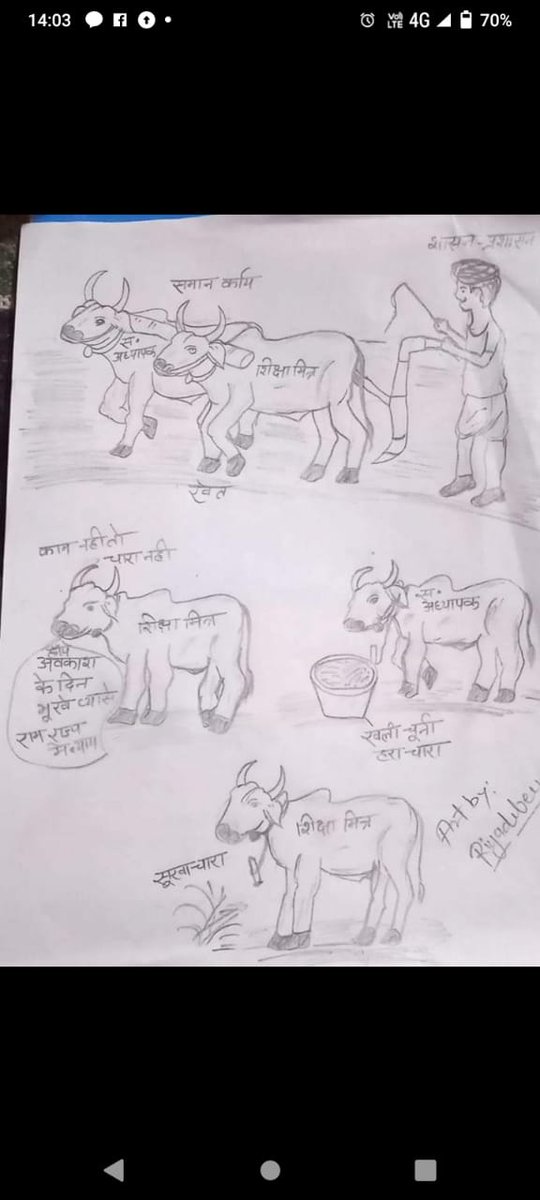 14:03
4G
70%
शासन-प्रशासन
समान कार्य
स॰
अध्यापक
शिक्षा मित्र
खेत
काम नही तो
चारा नही
शिक्षा मित्र
अवकाश
के दिन
भूखे प्यासे
राम राज्य
स॰
अध्यापक
खली चूनी
हरा चारा
शिक्षा मित्र
सूखा चारा
Art by: